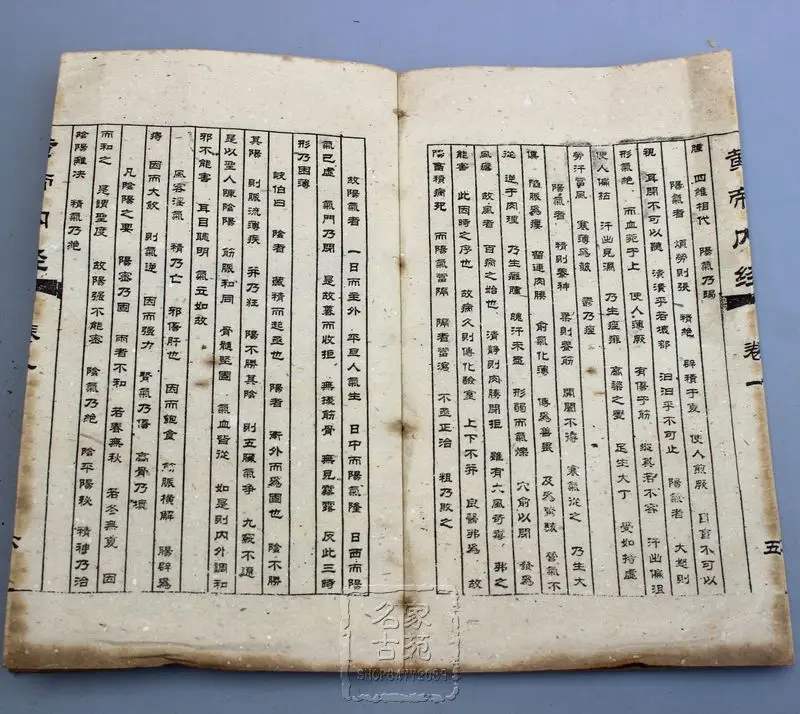 黄帝内经 卷一 五
腫 四維相代 陽氣乃竭
陽氣者 煩勞則張 精絶 辟積于夏 使人煎厥 目盲不可以
視 耳閉不可以聽 潰潰乎若壞都 汩汩乎不可止 陽氣者 大怒則
形氣絶 而血菀于上 使人薄厥 有傷于筋 縱其若不容 汗出偏沮
使人偏枯 汗出見濕 乃生痤疿 高粱之變 足生大丁 受如持虚
勞汗當風 寒薄爲皶 鬱乃痤
陽氣者 精則養神 柔則養筋 開闔不得 寒氣從之 乃生大
僂 陷脈爲瘻 留連肉腠 俞氣化薄 傳爲善畏 及爲驚駭 營氣不
從 逆于肉理 乃生癰腫 魄汗未盡 形弱而氣爍 穴俞以閉 發爲
風瘧 故風者 百病之始也 清静則肉腠閉拒 雖有大風苛毒 弗之
能害 此因時之序也 故病久則傳化 上下不并 良醫弗爲 故
陽畜積病死 而陽氣當隔 隔者當瀉 不亟正治 粗乃敗之
故陽氣者 一日而主外 平旦人氣生 日中而陽氣隆 日西而陽
氣已虚 氣門乃閉 是故暮而收拒 無擾筋骨 無見霧露 反此三時
形乃困薄
岐伯曰 陰者 藏精而起亟也 陽者 衛外而爲固也 陰不勝
其陽 則脈流薄疾 并乃狂 陽不勝其陰 則五臟氣争 九竅不通
是以聖人陳陰陽 筋脈和同 骨髓堅固 氣血皆從 如是則内外調和
邪不能害 耳目聰明 氣立如故
風客淫氣 精乃亡 邪傷肝也 因而飽食 筋脈横解 腸辟爲
痔 因而大飲 則氣逆 因而强力 腎氣乃傷 高骨乃壞
凡陰陽之要 陽密乃固 兩者不和 若春無秋 若冬無夏 因
而和之 是謂聖度 故陽强不能密 陰氣乃絶 陰平陽秘 精神乃治
陰陽離决 精氣乃絶
名家
古苑
SHOP34772089